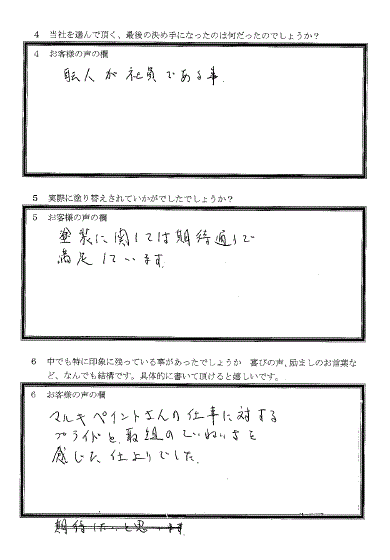 4 当社を選んで頂く、最後の決め手になったのは何だったのでしょうか?
4 お客様の声の欄
職人が社員である事.
5 実際に塗り替えされていかがでしたでしょうか?
5 お客様の声の欄
塗装に関しては期待通りで
満足しています.
6 中でも特に印象に残っている事があったでしょうか 喜びの声,励ましのお言葉な
ど、なんでも結構です。具体的に書いて頂けると嬉しいです。
6 お客様の声の欄
マルキペイントさんの仕事に対する
プライドと、取組のていねいさを
感じた仕上りでした.
期待したいと思います